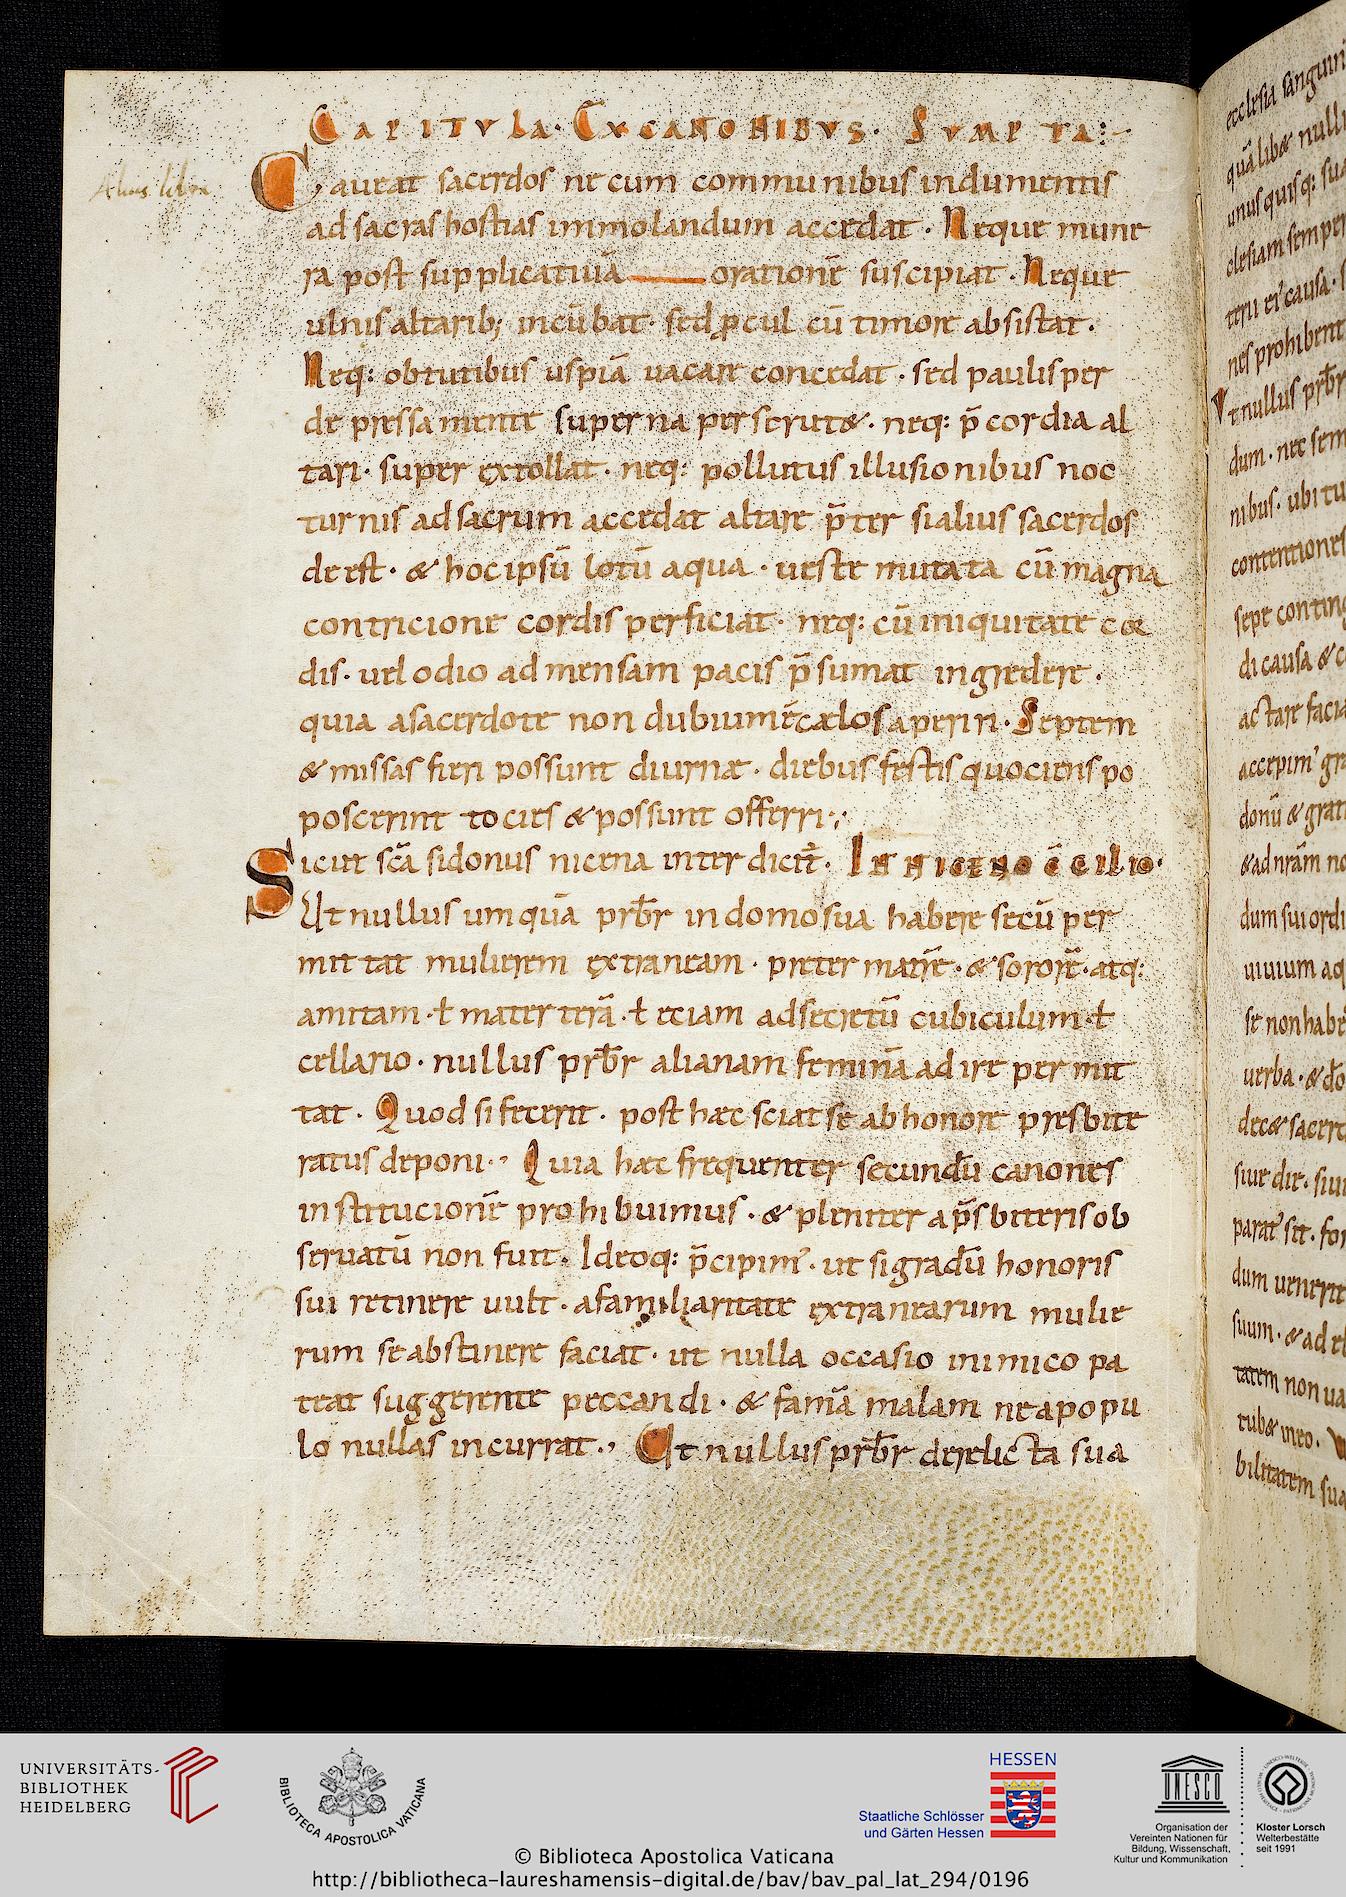 CAPITULA· EX CANONIBUS· SUMPTA:
Alius liber
Caueat sacerdos ne cum communibus indumentis
ad sacras hostias immolandum accedat · Neque mune
ra post supplicatiuā orationē suscipiat · Neque
ulnis altarib; incūbat · sed ꝓcul cū timore absistat ·
Neq: obtutibus uspiā uacare concedat · sed paulisper
depressa mente superna perscrut& · neq: p̄cordia al
tari · super extollat · neq: pollutus illusionibus noc
turnis ad sacrum accedat altare p̄ter si alius sacerdos
deest · & hoc ipsū lotū aqua · ueste mutata cū magna
contricione cordis perficiat · neq: cū iniquitate c&
dis · uel odio ad mensam pacis p̄sumat ingredere ·
quia a sacerdote non dubium ē cælos aperiri · Septem
& missas fieri possunt diurnæ · diebus festis quociens po
poscerint tocies & possunt offerri·,·
Sicut scā sidonus nicena inter dicit · IN NICENO CCILIO·
Ut nullus umquā prb̄r in domo sua habere secū per
mittat mulierem extraneam · preter matrē · & sororē · atq:
amitam · ł materterā · ł eciam ad secretū cubiculum · ł
cellario · nullus prb̄r alianam feminā ad ire permit
tat · Quod si fecerit · post hæc sciat se ab honore presbite
ratus deponi · Quia hæc frequenter secundū canones
institucionē prohibuimus · & pleniter a p̄sbiteris ob
seruatū non fuit · Ideoq: p̄cipim' · ut si gradū honoris
sui retinere uult · a familiaritate extranearum mulie
rum se abstinere faciat · ut nulla occasio inimico pa
teat suggerente peccandi · & famā malam ne a popu
lo nullas incurrat ·, Ut nullus prb̄r derelicta sua
ecclesia
quālib&
unus quisq: sua
clesiam semper
nes prohibent
Ut nullus prb̄r
dum · nec sem
nibus · ubi
contentiones
sepe conting
di causa & c
actare facia
accepim' gra
donū & grati
& ad nrām no
dum sui ordi
uiuium aq
se non habe
uerba · & do
dec& sacerd
siue die · siu
parat' sit · for
dum uenerit
suum · & ad
tatem non ua
tub& in eo ·
bilitatem sua
UNIVERSITÄTS-
BIBLIOTHEK
HEIDELBERG
BIBLIOTECA APOSTOLICA VATICANA
HESSEN
Staatliche Schlösser
und Gärten Hessen
UNESCO
Organisation der
Vereinten Nationen für
Bildung, Wissenschaft,
Kultur und Kommunikation
Kloster Lorsch
Welterbestätte
seit 1991
© Biblioteca Apostolica Vaticana
http://bibliotheca-laureshamensis-digital.de/bav/bav_pal_lat_294/0196